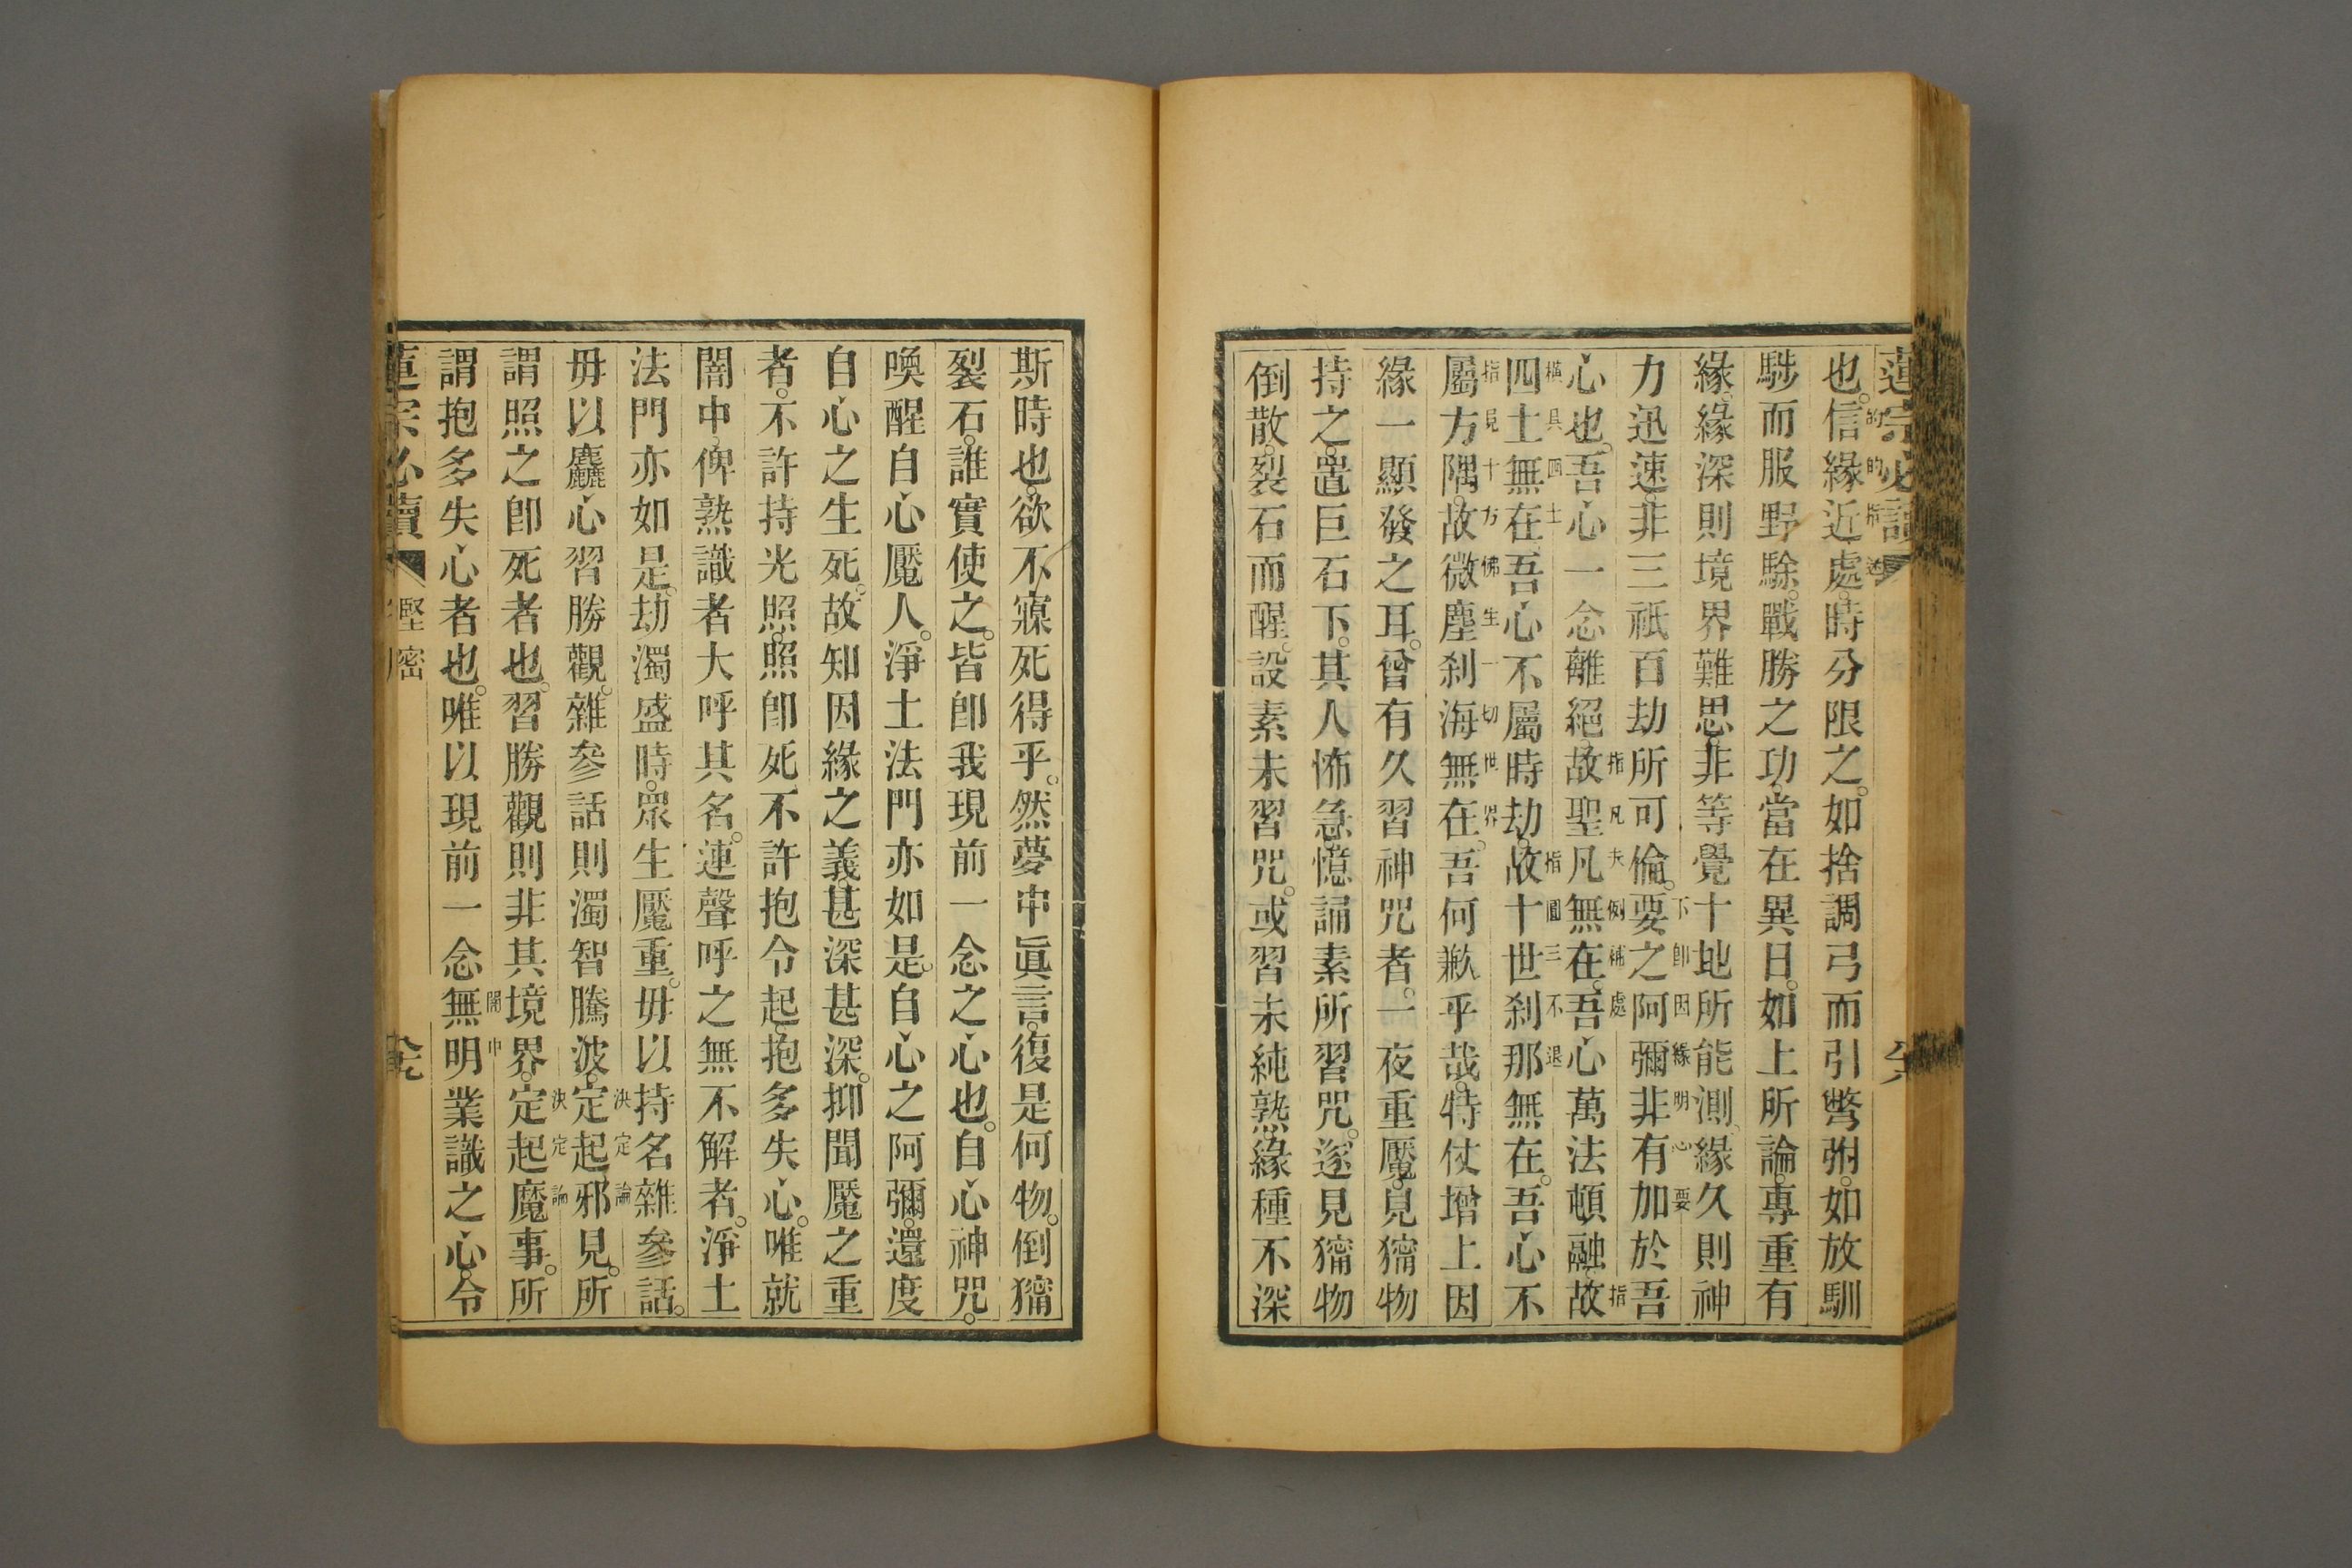 蓮宗必讀
也。信緣近處。時分限之。如捨調弓而引弊弣。如放馴
的的指迷
駛而服野駼。戰勝之功。當在異日。如上所論。專重有
緣。緣深則境界難思。非等覺十地所能測。緣久則神
力迅速。非三祇百劫所可倫。要之阿彌非有加於吾
下卽因緣明心要
心也。吾心一念離絕。故聖凡無在。吾心萬法頓融。故
指凡夫例補處
指
橫具四土
四土無在。吾心不屬時劫。故十世剎那無在。吾心不
指圓三不退
指見十方佛生一切世界
屬方隅。故微塵剎海無在。吾何歉乎哉。特仗增上因
緣一顯發之耳。曾有久習神咒者。一夜重魘。見獰物
持之。置巨石下。其人怖急。憶誦素所習咒。遂見獰物
倒散。裂石而醒。設素未習咒。或習未純熟。緣種不深
斯時也。欲不寱死得乎。然夢中眞言。復是何物。倒獰
裂石。誰實使之。皆卽我現前一念之心也。自心神咒。
喚醒自心魘人。淨土法門亦如是。自心之阿彌。還度
自心之生死。故知因緣之義。甚深甚深。抑聞魘之重
者。不許持光照。照卽死。不許抱令起。抱多失心。唯就
闇中。俾熟識者大呼其名。連聲呼之。無不解者。淨土
法門亦如是。劫濁盛時。眾生魘重。毋以持名雜參話。
決定論
毋以麤心習勝觀。雜參話則濁智騰波。定起邪見。所
決定論
謂照之卽死者也。習勝觀則非其境界。定起魔事。所
闇中
謂抱多失心者也。唯以現前一念無明業識之心。令
蓮宗必讀